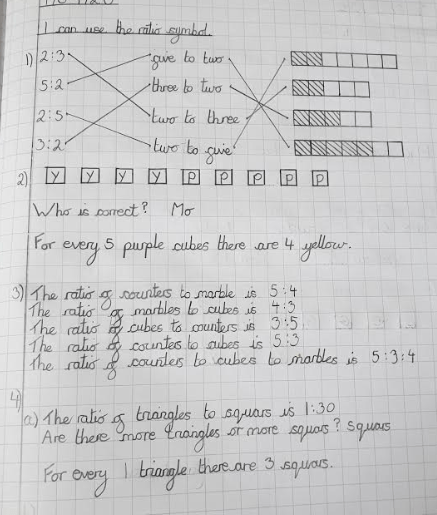 I can use the ratio symbol.
1) 2:3 give to two
5:2 three to two
2:5 two to three
3:2 two to give
2) y y y y p p p p p
Who is correct? Mo
For every 5 purple cubes there are 4 yellow.
3) The ratio of counters to marble is 5:4
The ratio of marbles to cubes is 4:3
The ratio of cubes to counters is 3:5
The ratio of counters to cubes is 5:3
The ratio of counters to cubes to marbles is 5:3:4
4)
a) The ratio of triangles to squars is 1:30
Are there more triangles or more squars? Squars
For every 1 triangle there are 3 squars.